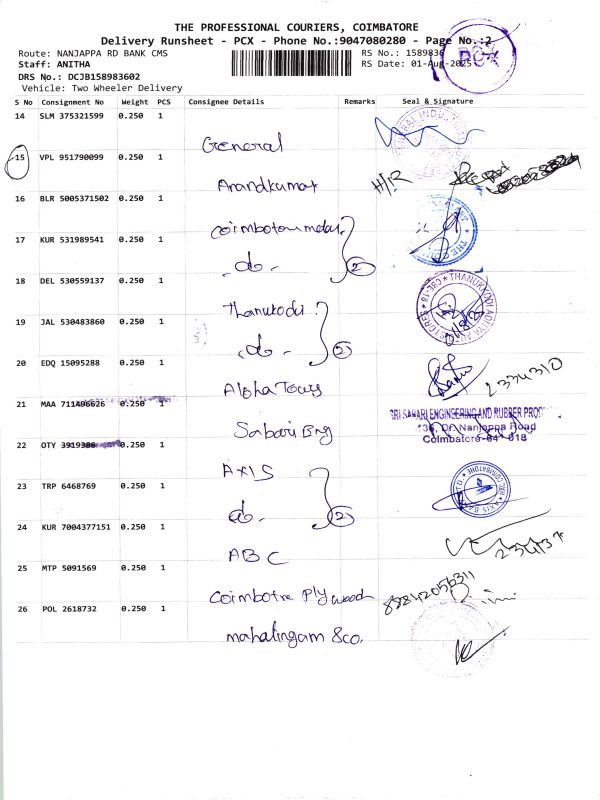 THE PROFESSIONAL COURIERS, COIMBATORE
Delivery Runsheet - PCX - Phone No.:9047080280 - Page No.:2
Route: NANJAPPA RD BANK CMS
RS No.: 1589836
Staff: ANITHA
RS Date: 01-Aug-2025
DRS No.: DCJB158983602
Vehicle: Two Wheeler Delivery
PCX
S No Consignment No Weight PCS Consignee Details Remarks Seal & Signature
14 SLM 375321599 0.250 1
General
15 VPL 951790099 0.250 1
Anandkumar H/R
16 BLR 5005371502 0.250 1
Coimbatore metal
17 KUR 531989541 0.250 1
-do- 2
18 DEL 530559137 0.250 1
Thanukodi
THANUKKODI ADITYA AUTO STORES
19 JAL 530483860 0.250 1
-do- 2
20 EDQ 15095288 0.250 1
Alpha Toays 2334310
21 MAA 711496626 0.250 1
Sabari Eng
SRI SABARI ENGINEERING AND RUBBER PROD
136, Dr. Nanjappa Road
Coimbatore-641 018
22 OTY 3919386 0.250 1
AXIS
23 TRP 6468769 0.250 1
do- 2
AXIS BANK LTD. COIMBATORE
24 KUR 7004377151 0.250 1
ABC
25 MTP 5091569 0.250 1
Coimbatore Plywood
26 POL 2618732 0.250 1
mahalingam &co.